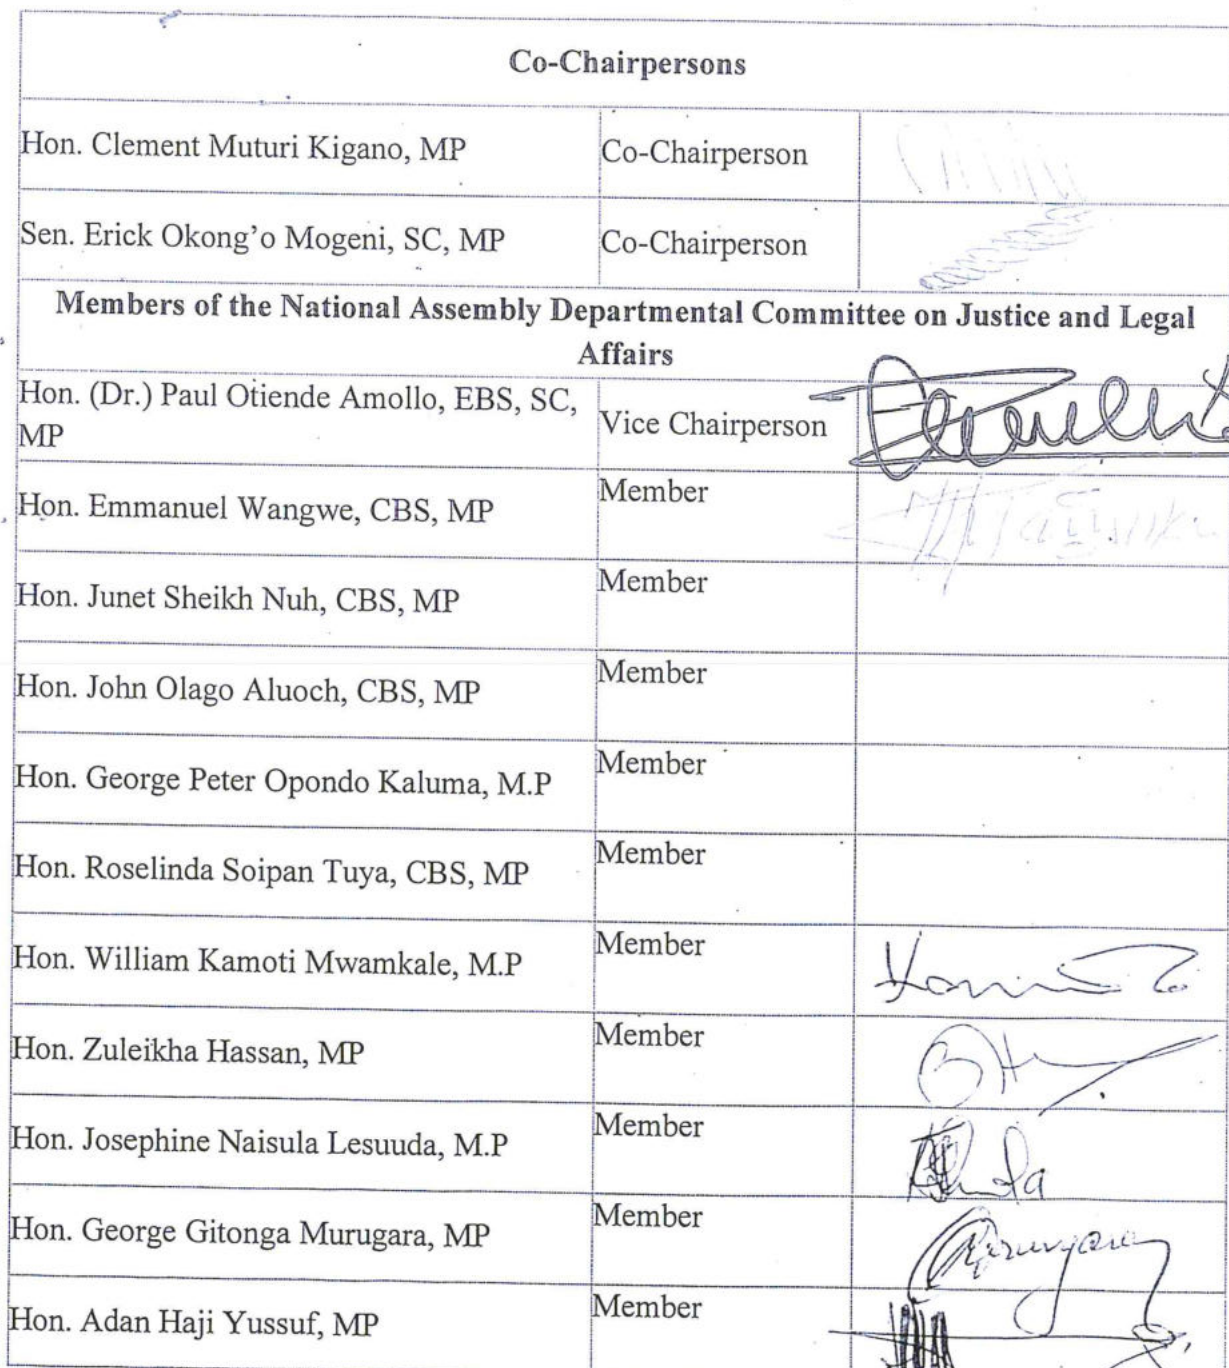 Co-Chairpersons
Hon. Clement Muturi Kigano, MP Co-Chairperson
Sen. Erick Okong’o Mogeni, SC, MP Co-Chairperson
Members of the National Assembly Departmental Committee on Justice and Legal
Affairs
Hon. (Dr.) Paul Otiende Amollo, EBS, SC,
MP
Vice Chairperson
Hon. Emmanuel Wangwe, CBS, MP Member
Hon. Junet Sheikh Nuh, CBS, MP Member
Hon. John Olago Aluoch, CBS, MP Member
Hon. George Peter Opondo Kaluma, M.P Member
Hon. Roselinda Soipan Tuya, CBS, MP Member
Hon. William Kamoti Mwamkale, M.P Member
Hon. Zuleikha Hassan, MP Member
Hon. Josephine Naisula Lesuuda, M.P Member
Hon. George Gitonga Murugara, MP Member
Hon. Adan Haji Yussuf, MP Member